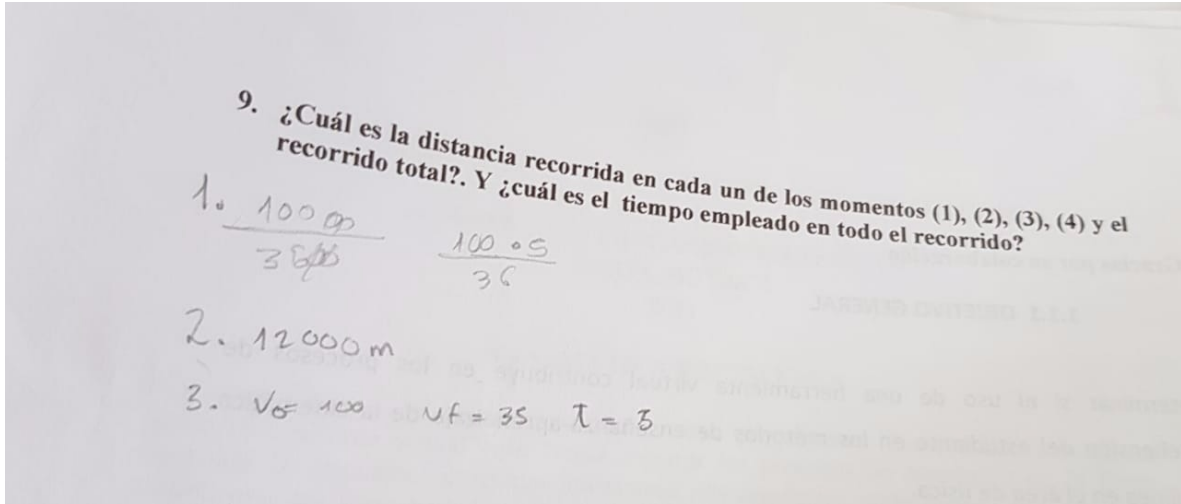 9. ¿Cuál es la distancia recorrida en cada un de los momentos (1), (2), (3), (4) y el
recorrido total?. Y ¿cuál es el tiempo empleado en todo el recorrido?
1. 100
36
100 • 5
36
2. 12000 m
3. Vo= 100 Vf = 35 T = 3